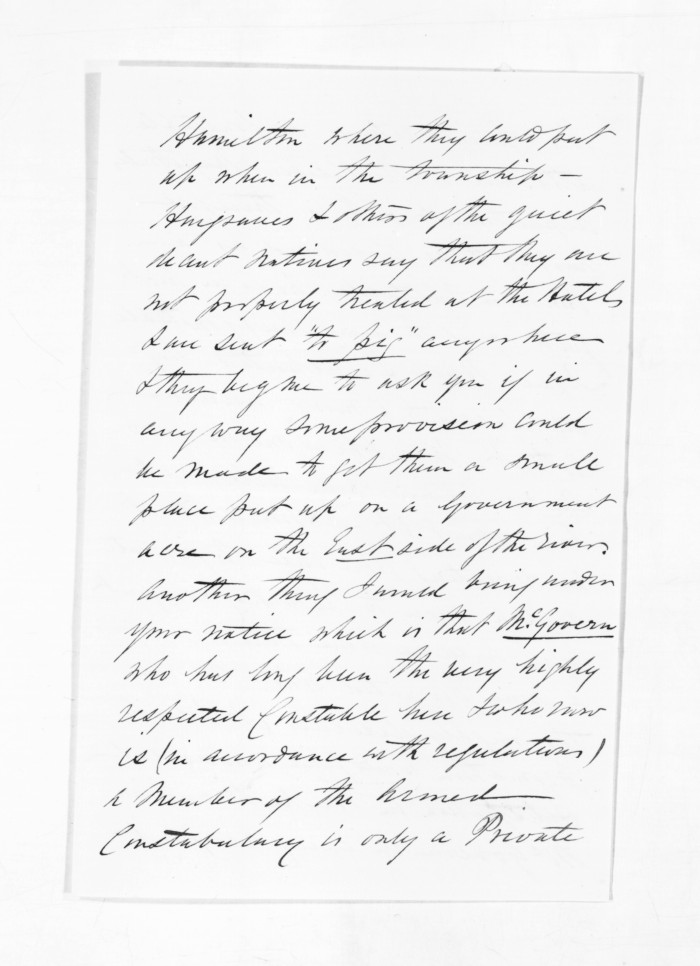 Hamilton where they could put
up when in the township —
Hargraves & others of the quiet
decent natives say that they are
not properly treated at the Hotels
& are sent "to pig" anywhere
& they beg me to ask you if in
any way some provision could
be made to get them a small
place put up on a Government
acre on the East side of the river.
Another thing I would bring under
your notice which is that McGovern
who has long been the very highly
respected Constable here & who now
is (in accordance with regulations)
a Member of the Armed
Constabulary is only a Private